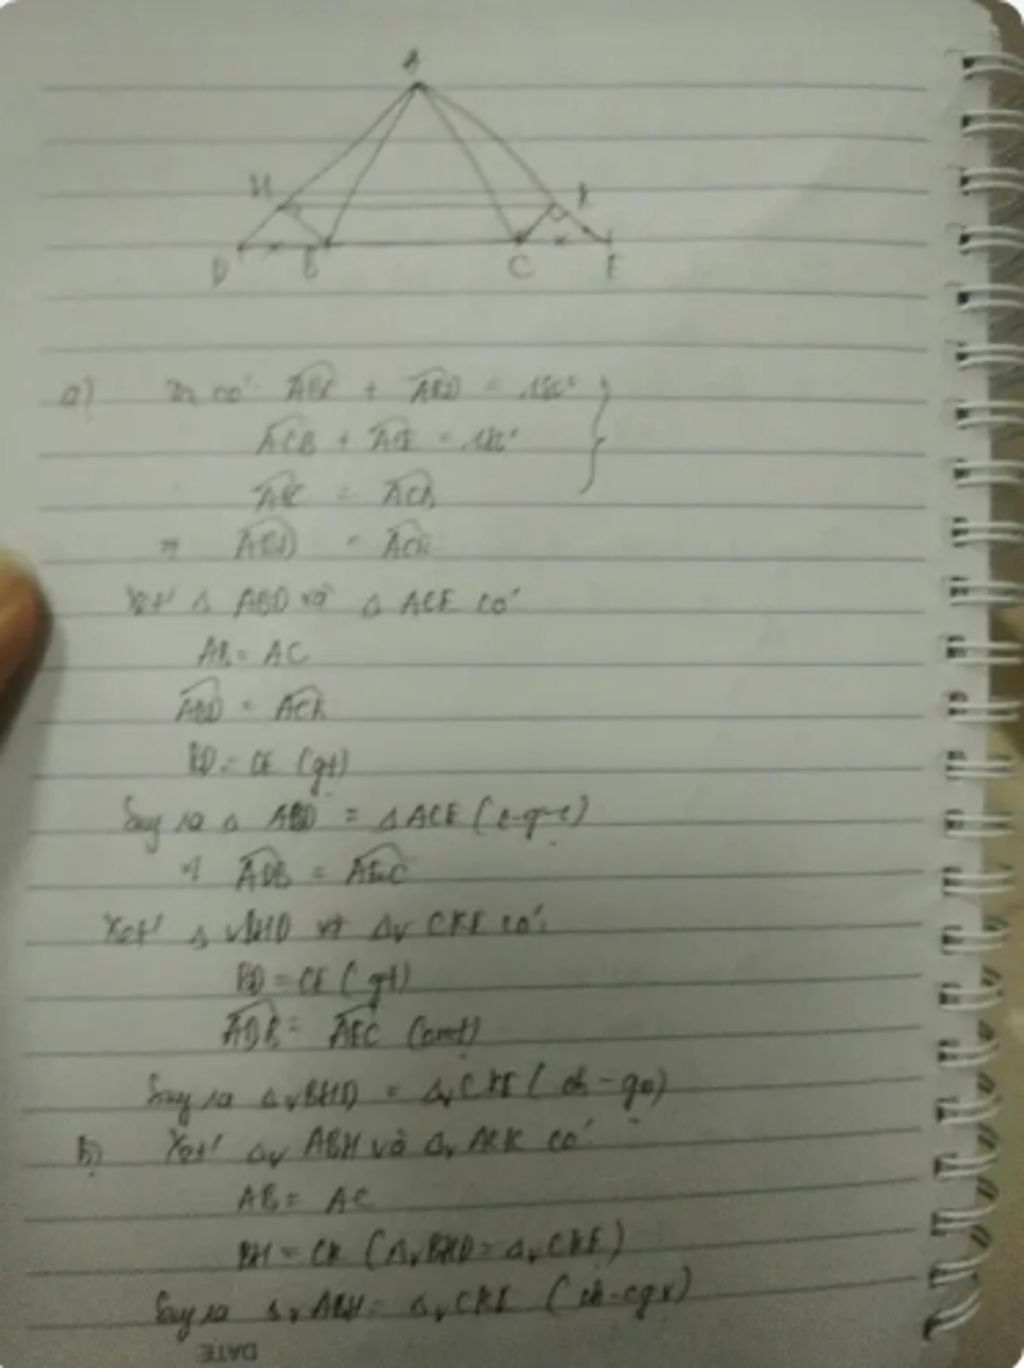 A
H
K
D B C E
a) Ta có: ABC + ABD = 180°
ACB + ACE = 180°
ABC = ACB
⇒ ABD = ACE
Xét Δ ABD và Δ ACE có
AB = AC
ABD = ACE
BD = CE (gt)
Suy ra Δ ABD = Δ ACE (c-g-c)
⇒ ADB = AEC
Xét Δv BHD và Δv CKE có:
BD = CE (gt)
ADB = AEC (cmt)
Suy ra ΔvBHD = ΔvCKE (ch - gn)
b) Xét Δv ABH và Δv ACK có
AB = AC
BH = CK (ΔvBHD = ΔvCKE)
Suy ra ΔvABH = ΔvCKE (ch-cgv)
DATE